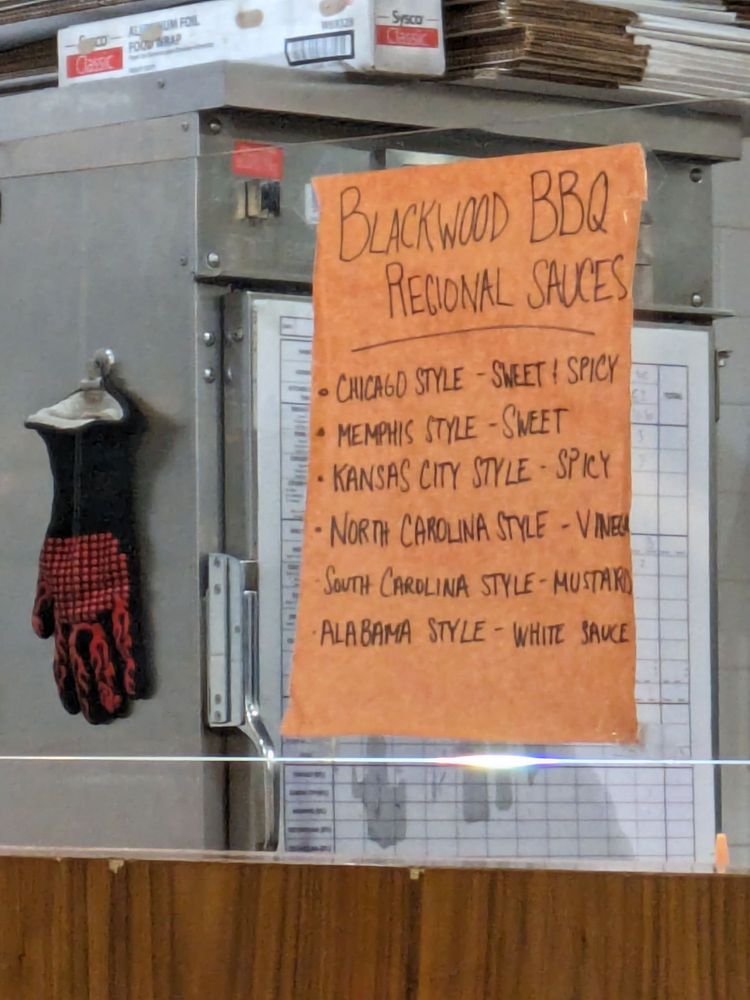 Sysco
Classic
ALUMINUM FOIL
FOOD WRAP
Sysco
Classic
BLACKWOOD BBQ
REGIONAL SAUCES
• CHICAGO STYLE - SWEET & SPICY
• MEMPHIS STYLE - SWEET
• KANSAS CITY STYLE - SPICY
• NORTH CAROLINA STYLE - VINEG
• SOUTH CAROLINA STYLE - MUSTARD
• ALABAMA STYLE - WHITE SAUCE